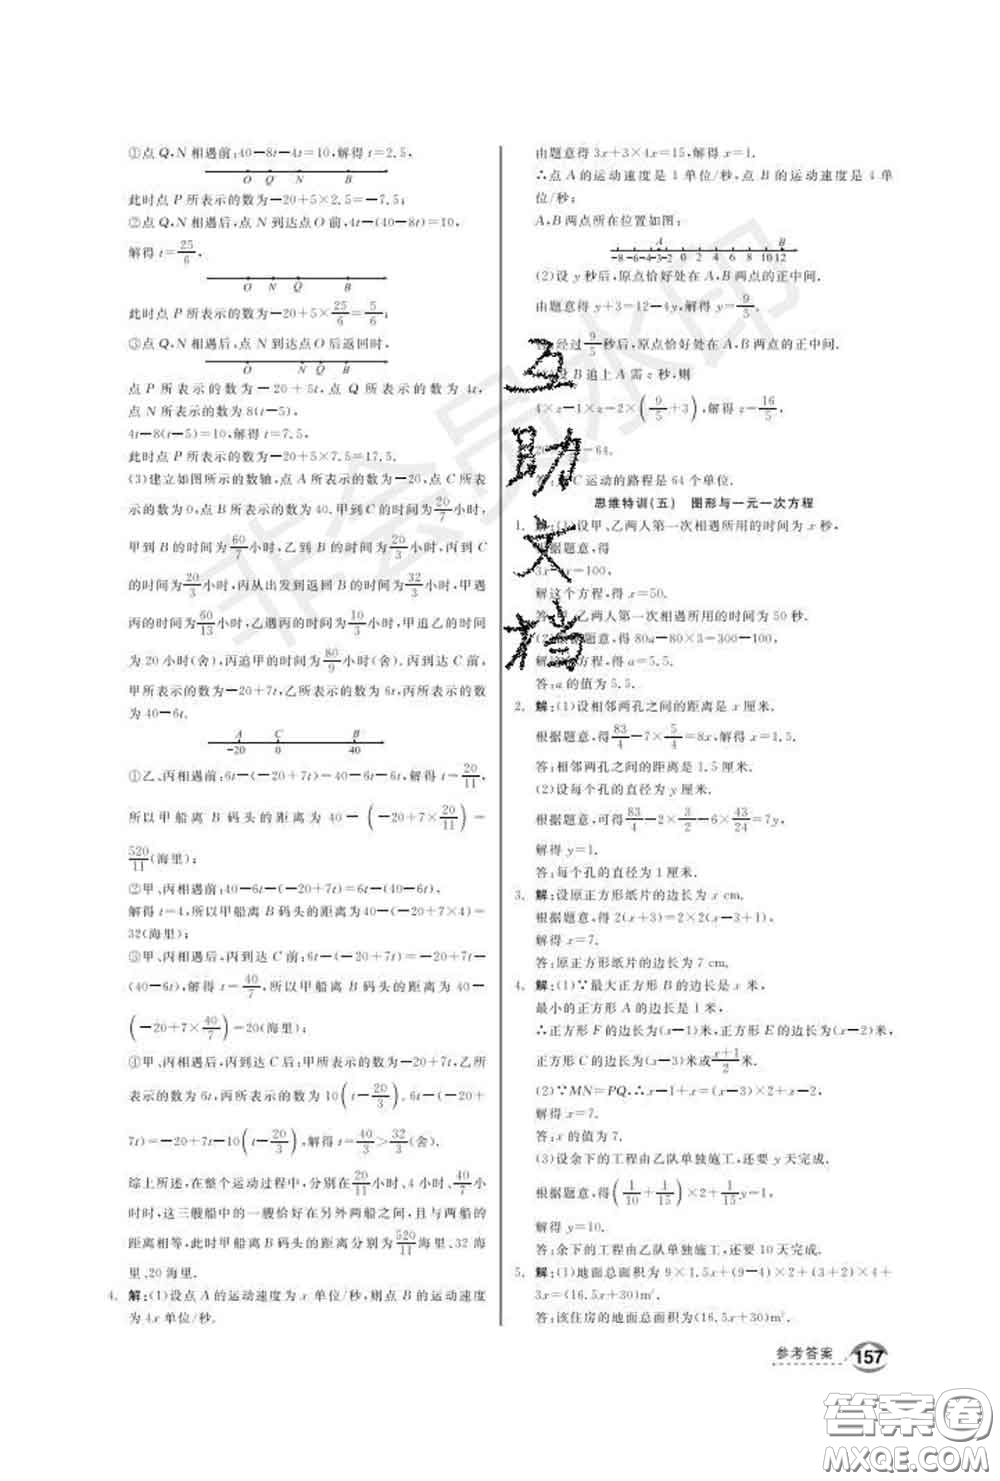 ①点 Q、N 相遇前:40－8t－4t＝10,解得 t＝2.5,
O Q N B
此时点 P 所表示的数为－20＋5×2.5＝－7.5;
②点 Q、N 相遇后,点 N 到达点 O 前,4t－(40－8t)＝10,
解得 t＝25/6,
O N Q B
此时点 P 所表示的数为－20＋5×25/6＝5/6;
③点 Q、N 相遇后,点 N 到达点 O 后返回时,
O N Q B
点 P 所表示的数为－20＋5t,点 Q 所表示的数为 4t,
点 N 所表示的数为 8(t－5),
4t－8(t－5)＝10,解得 t＝7.5,
此时点 P 所表示的数为－20＋5×7.5＝17.5.
(3)建立如图所示的数轴,点 A 所表示的数为－20,点 C 所表示的数为 0,点 B 所表示的数为 40.甲到 C 的时间为20/7小时,
甲到 B 的时间为60/7小时,乙到 B 的时间为20/3小时,丙到 C
的时间为20/3小时,丙从出发到返回 B 的时间为32/3小时,甲遇
丙的时间为60/13小时,乙遇丙的时间为20/11小时,甲追乙的时间
为 20 小时(舍),丙追甲的时间为80/9小时(舍).丙到达 C 前,
甲所表示的数为－20＋7t,乙所表示的数为 6t,丙所表示的数
为 40－6t.
A C B
-20 0 40
①乙、丙相遇前:6t－(－20＋7t)＝40－6t－6t,解得 t＝20/11,
所以甲船离 B 码头的距离为 40－(－20＋7×20/11)＝
520/11(海里);
②甲、丙相遇前:40－6t－(－20＋7t)＝6t－(40－6t),
解得 t＝4,所以甲船离 B 码头的距离为40－(－20＋7×4)＝
32(海里);
③甲、丙相遇后,丙到达 C 前:6t－(－20＋7t)＝－20＋7t－
(40－6t),解得 t＝40/7,所以甲船离 B 码头的距离为 40－
(－20＋7×40/7)＝20(海里);
④甲、丙相遇后,丙到达 C 后:甲所表示的数为－20＋7t,乙所
表示的数为 6t,丙所表示的数为 10(t－20/3).6t－(－20＋
7t)＝－20＋7t－10(t－20/3),解得 t＝40/3＞32/3(舍).
综上所述,在整个运动过程中,分别在20/11小时、4 小时、40/7小
时时,这三艘船中的一艘恰好在另外两船之间,且与两船的
距离相等,此时甲船离 B 码头的距离分别为520/11海里、32 海
里、20 海里.
4. 解:(1)设点 A 的运动速度为 x 单位/秒,则点 B 的运动速度
为 4x 单位/秒.
由题意得 3x＋3×4x＝15,解得 x＝1.
∴点 A 的运动速度是 1 单位/秒,点 B 的运动速度是 4 单
位/秒;
A、B 两点所在位置如图:
A B
-8 -6 -4 -3 -2 0 2 4 6 8 10 12
(2)设 y 秒后,原点恰好处在 A、B 两点的正中间.
由题意得 y＋3＝12－4y,解得 y＝9/5.
经过9/5秒后,原点恰好处在 A、B 两点的正中间.
设 B 追上 A 需 z 秒,则
4×z－1×z＝2×(9/5＋3),解得 z＝16/5,
＝64.
C 运动的路程是 64 个单位.
思维特训(五) 图形与一元一次方程
1. 解:(1)设甲、乙两人第一次相遇所用的时间为 x 秒,
根据题意,得
＝100,
解这个方程,得 x＝50.
答:甲、乙两人第一次相遇所用的时间为 50 秒.
(2)根据题意,得 80a－80×3＝300－100,
解这个方程,得 a＝5.5.
答:a 的值为 5.5.
2. 解:(1)设相邻两孔之间的距离是 x 厘米.
根据题意,得83/4－7×5/4＝8x,解得 x＝1.5.
答:相邻两孔之间的距离是 1.5 厘米.
(2)设每个孔的直径为 y 厘米.
根据题意,可得83/4－2×3/2－6×43/24＝7y,
解得 y＝1.
答:每个孔的直径为 1 厘米.
3. 解:设原正方形纸片的边长为 x cm.
根据题意,得 2(x＋3)＝2×2(x－3＋1),
解得 x＝7.
答:原正方形纸片的边长为 7 cm.
4. 解:(1)∵最大正方形 B 的边长是 x 米,
最小的正方形 A 的边长是 1 米,
∴正方形 F 的边长为(x－1)米,正方形 E 的边长为(x－2)米,
正方形 C 的边长为(x－3)米或x＋1/2米.
(2)∵MN＝PQ,∴x－1＋x＝(x－3)×2＋x－2,
解得 x＝7.
答:x 的值为 7.
(3)设余下的工程由乙队单独施工,还要 y 天完成.
根据题意,得(1/10＋1/15)×2＋1/15y＝1,
解得 y＝10.
答:余下的工程由乙队单独施工,还要 10 天完成.
5. 解:(1)地面总面积为 9×1.5x＋(9－4)×2＋(3＋2)×4＋
3x＝(16.5x＋30)m².
答:该住房的地面总面积为(16.5x＋30)m².
参考答案 157
非会员水印
互助文档
答案圈
MXQE.COM